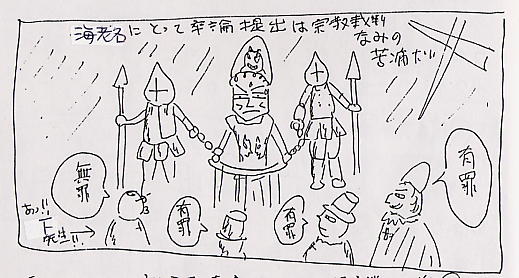 海老名にとって卒論提出は宗教裁判
なみの
苦痛だ!!
有罪
無罪
有罪
有罪
あっ!!
先生!!